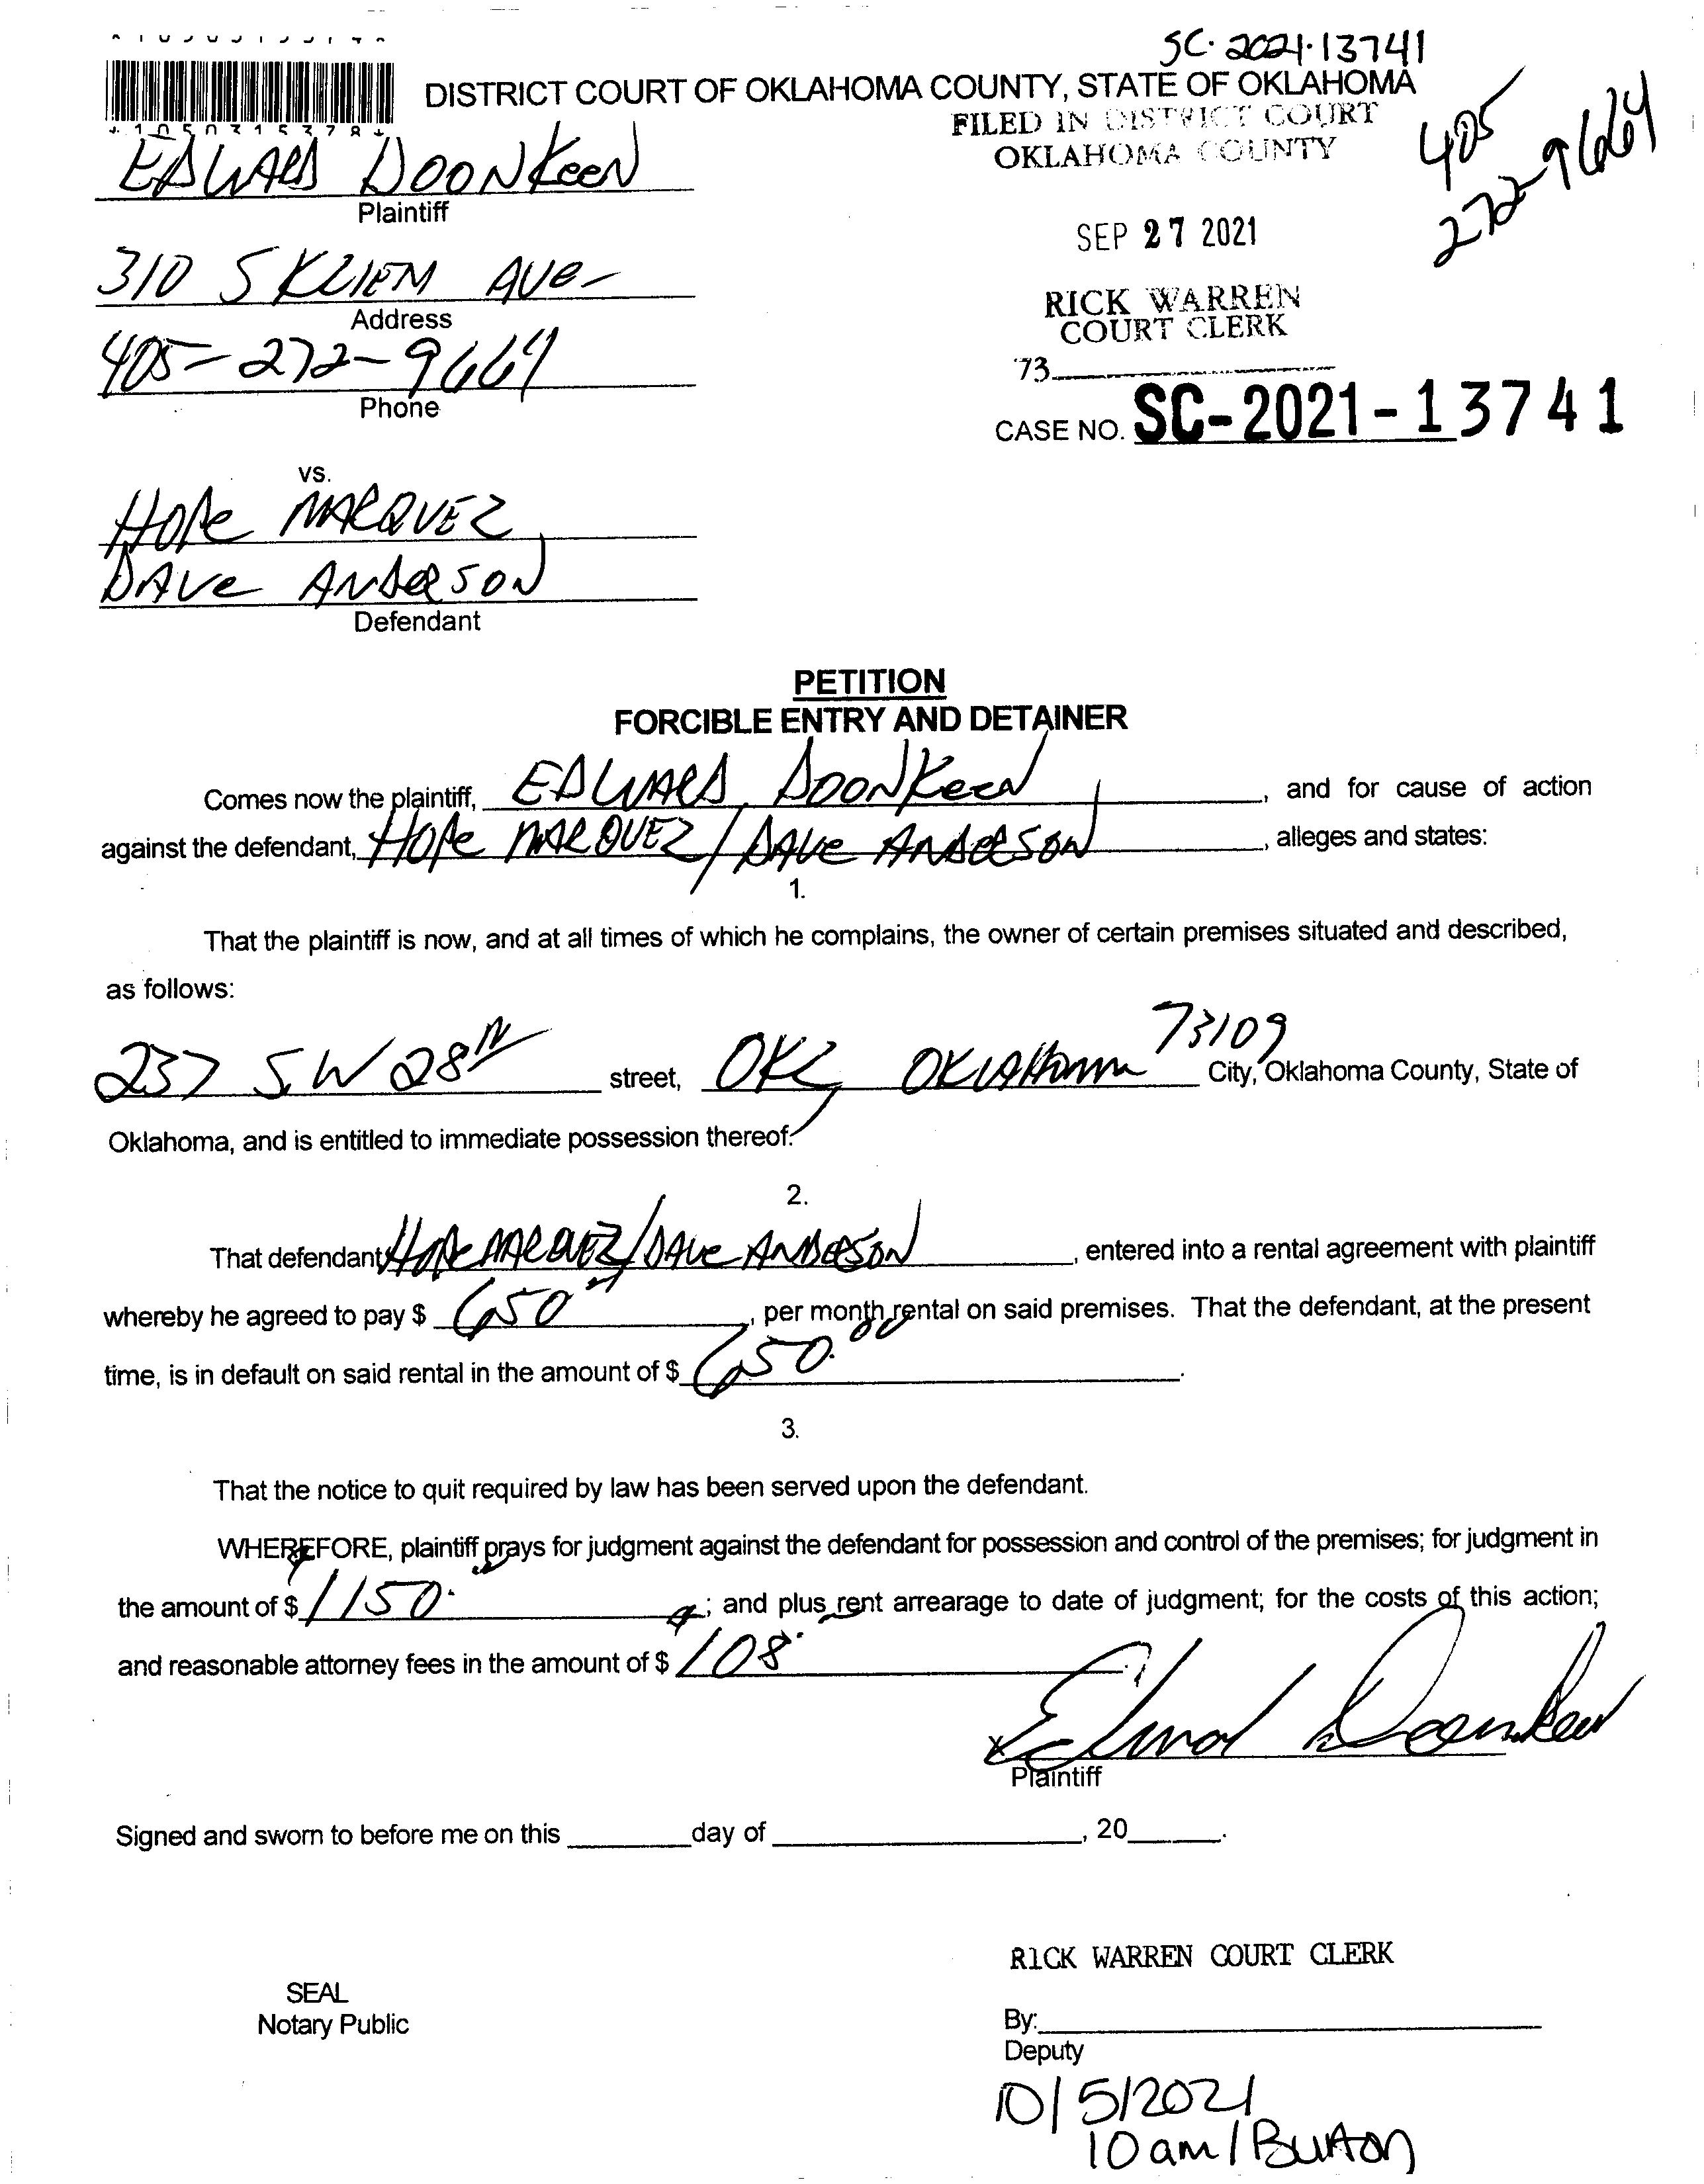 SC-2021-13741
DISTRICT COURT OF OKLAHOMA COUNTY, STATE OF OKLAHOMA
FILED IN DISTRICT COURT
OKLAHOMA COUNTY
405
272-9664
EDWARD DOONKEEN
Plaintiff
SEP 27 2021
310 S KLIEM AVE
Address
RICK WARREN
COURT CLERK
405-272-9664
Phone
73
CASE NO. SC-2021-13741
vs.
HOPE MARQUEZ
DAVE ANDERSON
Defendant
PETITION
FORCIBLE ENTRY AND DETAINER
Comes now the plaintiff, EDWARD DOONKEEN, and for cause of action
against the defendant, HOPE MARQUEZ/DAVE ANDERSON, alleges and states:
1.
That the plaintiff is now, and at all times of which he complains, the owner of certain premises situated and described,
as follows:
237 S.W 28TH street, OKC, OKLAHOMA 73109 City, Oklahoma County, State of
Oklahoma, and is entitled to immediate possession thereof.
2.
That defendant HOPE MARQUEZ/DAVE ANDERSON, entered into a rental agreement with plaintiff
whereby he agreed to pay $ 650, per month rental on said premises. That the defendant, at the present
time, is in default on said rental in the amount of $ 650.00.
3.
That the notice to quit required by law has been served upon the defendant.
WHEREFORE, plaintiff prays for judgment against the defendant for possession and control of the premises; for judgment in
the amount of $ 1150.; and plus rent arrearage to date of judgment; for the costs of this action;
and reasonable attorney fees in the amount of $ 108.
X Edward Doonkeen
Plaintiff
Signed and sworn to before me on this ______ day of ____________, 20____.
RICK WARREN COURT CLERK
SEAL
Notary Public
By:
Deputy
10/5/2021
10am/Burton